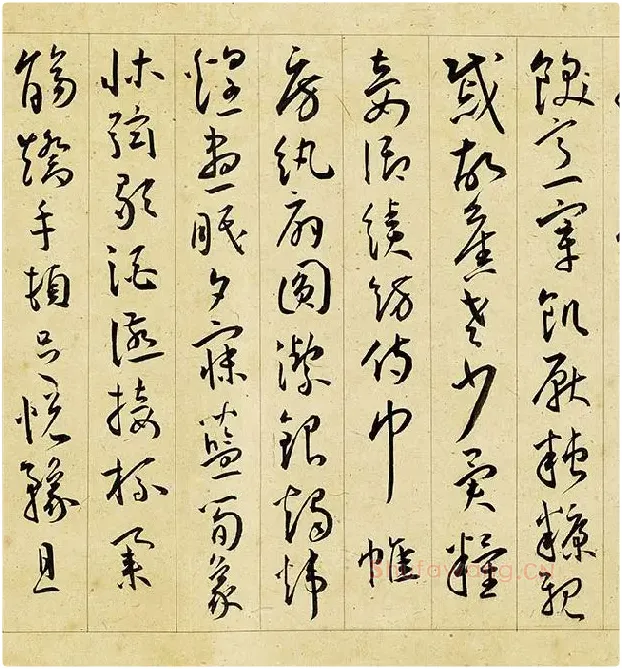 飫亨宰飢厭糟糠親
戚故舊老少異糧
妾御績紡侍巾帷
房紈扇圓潔銀燭煒
煌晝眠夕寐藍筍象
牀弦歌酒讌接杯舉
觴矯手頓足悅豫且